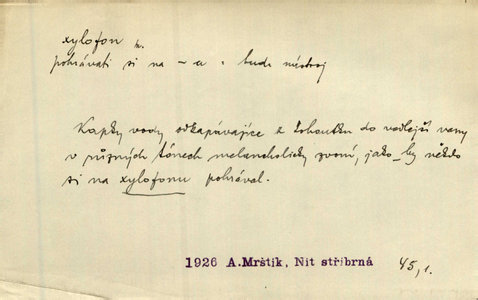 xylofon m.
pohrávati si na -u : hud. nástroj
Kapky vody odkapávajíce z kohoutku do vedlejší vany
v různých tónech melancholicky zvoní, jako by někdo
si na xylofonu pohrával.
1926 A.Mrštík, Nit stříbrná 45,1.